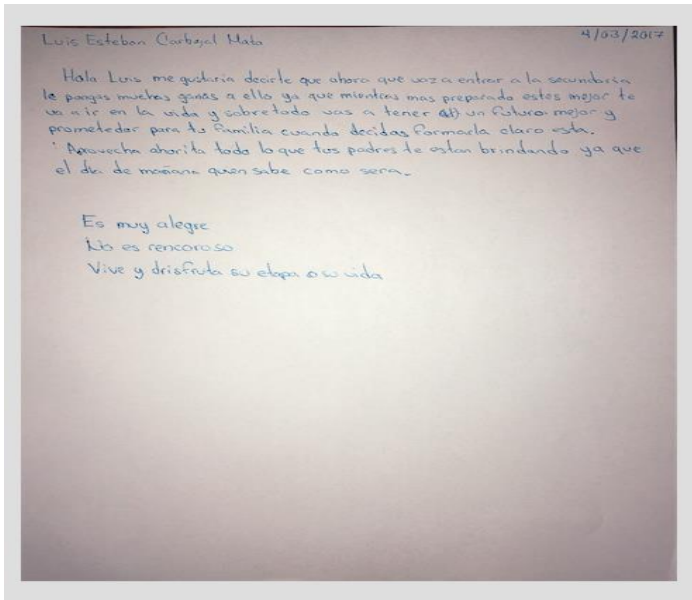 Luis Esteban Carbajal Mata 4/03/2017
Hola Luis me gustaria decirte que ahora que vaz a entrar a la secundaria
le pongas muchas ganas a ello ya que mientras mas preparado estes mejor te
va a ir en la vida y sobretodo vas a tener un futuro mejor y
prometedor para tu familia cuando decidas formarla claro esta.
Aprovecha ahorita todo lo que tus padres te estan brindando ya que
el dia de mañana quien sabe como sera.
Es muy alegre
No es rencoroso
Vive y drisfruta su etapa o su vida